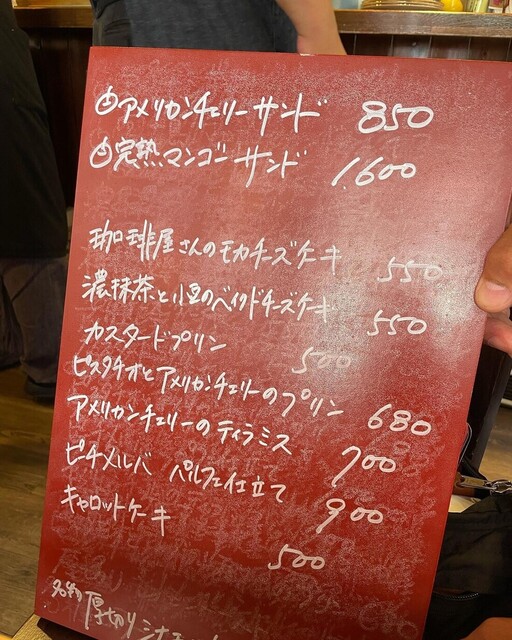 アメリカンチェリーサンド 850
完熟マンゴーサンド 1,600
珈琲屋さんのモカチーズケーキ 550
濃抹茶と小豆のベイクドチーズケーキ 550
カスタードプリン 500
ピスタチオとアメリカンチェリーのプリン 680
アメリカンチェリーのティラミス 700
ピチメルバ パルフェ仕立て 900
キャロットケーキ 500
厚切りシナモン